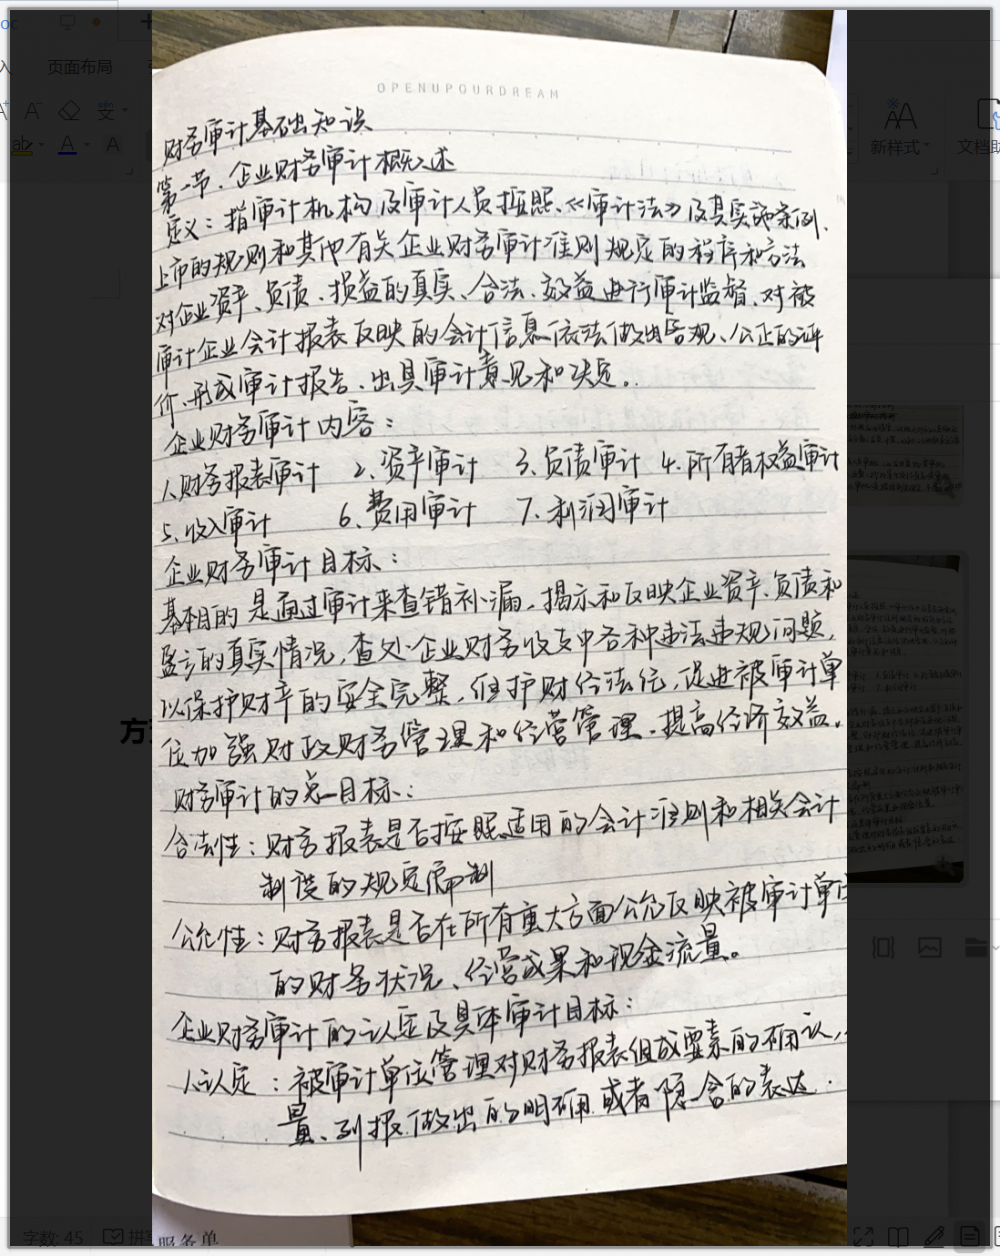 OPENUPOURDREAM
财务审计基础知识
第一节、企业财务审计概述
定义：指审计机构及审计人员按照《审计法》及其实施条例、
上市的规则和其他有关企业财务审计准则规定的程序和方法
对企业资产、负债、损益的真实、合法、效益进行审计监督、对被
审计企业会计报表反映的会计信息依法做出客观、公正的评
价、形成审计报告、出具审计意见和决定。
企业财务审计内容：
1、财务报表审计 2、资产审计 3、负债审计 4、所有者权益审计
5、收入审计 6、费用审计 7、利润审计
企业财务审计目标：
基本目的是通过审计来查错补漏，揭示和反映企业资产、负债和
盈亏的真实情况，查处企业财务收支中各种违法违规问题，
以保护财产的安全完整，维护财经法纪，促进被审计单
位加强财政财务管理和经营管理、提高经济效益。
财务审计的总目标：
合法性：财务报表是否按照适用的会计准则和相关会计
制度的规定编制
公允性：财务报表是否在所有重大方面公允反映被审计单
的财务状况、经营成果和现金流量。
企业财务审计的认定及具体审计目标：
1、认定：被审计单位管理对财务报表组成要素的确认、
量、列报做出的明确或者隐含的表达.
页面布局
新样式
字数: 45
服务单